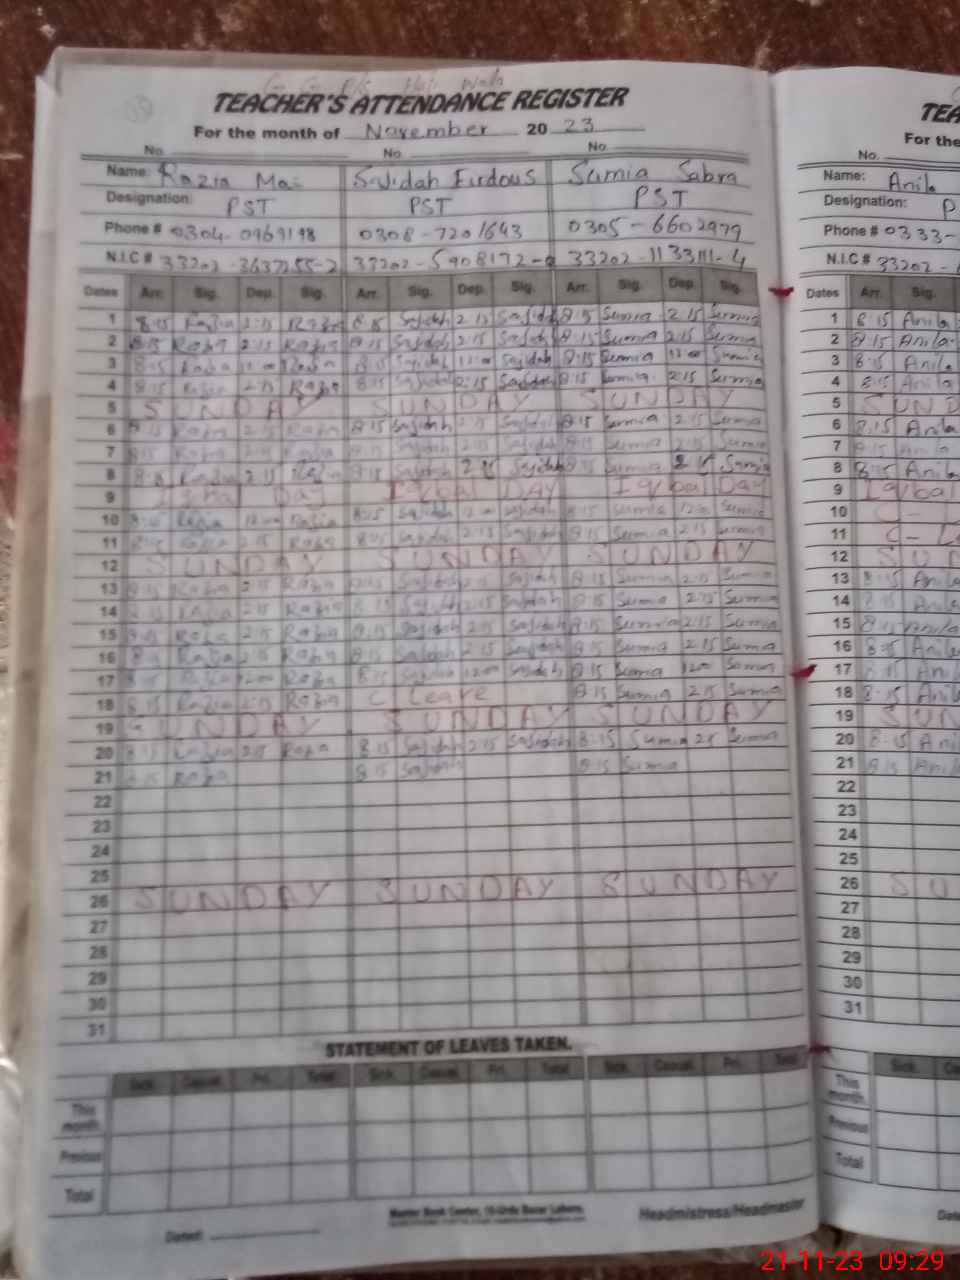 TEACHER'S ATTENDANCE REGISTER
For the month of November 20 23
No. No. No.
Name: Razia Mai Sajidah Firdous Sumia Sabra
Designation: PST PST PST
Phone # 0304-0969198 0308-7201643 0305-6602979
N.I.C # 33202-3637255-2 33202-5908172- 33202-1133111-4
Dates Arr. Sig. Dep. Sig. Arr. Sig. Dep. Sig. Arr. Sig. Dep. Sig.
1 8:15 Razia 2:15 Razia 8:15 Sajidah 2:15 Sajidah 8:15 Sumia 2:15 Sumia
2 8:15 Razia 2:15 Razia 8:15 Sajidah 2:15 Sajidah 8:15 Sumia 2:15 Sumia
3 8:15 Razia 12:00 Razia 8:15 Sajidah 12:00 Sajidah 8:15 Sumia 12:00 Sumia
4 8:15 Razia 2:15 Razia 8:15 Sajidah 2:15 Sajidah 8:15 Sumia 2:15 Sumia
5 SUNDAY SUNDAY SUNDAY
6 8:15 Razia 2:15 Razia 8:15 Sajidah 2:15 Sajidah 8:15 Sumia 2:15 Sumia
7 8:15 Razia 2:15 Razia 8:15 Sajidah 2:15 Sajidah 8:15 Sumia 2:15 Sumia
8 8:15 Razia 2:15 Razia 8:15 Sajidah 2:15 Sajidah 8:15 Sumia 2:15 Sumia
9 Iqbal Day Iqbal DAY Iqbal Day
10 8:15 Razia 12:00 Razia 8:15 Sajidah 12:00 Sajidah 8:15 Sumia 12:00 Sumia
11 8:15 Razia 2:15 Razia 8:15 Sajidah 2:15 Sajidah 8:15 Sumia 2:15 Sumia
12 SUNDAY SUNDAY SUNDAY
13 8:15 Razia 2:15 Razia 8:15 Sajidah 2:15 Sajidah 8:15 Sumia 2:15 Sumia
14 8:15 Razia 2:15 Razia 8:15 Sajidah 2:15 Sajidah 8:15 Sumia 2:15 Sumia
15 8:15 Razia 2:15 Razia 8:15 Sajidah 2:15 Sajidah 8:15 Sumia 2:15 Sumia
16 8:15 Razia 2:15 Razia 8:15 Sajidah 2:15 Sajidah 8:15 Sumia 2:15 Sumia
17 8:15 Razia 12:00 Razia 8:15 Sajidah 12:00 Sajidah 8:15 Sumia 12:00 Sumia
18 8:15 Razia 2:15 Razia C Leave 8:15 Sumia 2:15 Sumia
19 SUNDAY SUNDAY SUNDAY
20 8:15 Razia 2:15 Razia 8:15 Sajidah 2:15 Sajidah 8:15 Sumia 2:15 Sumia
21 8:15 Razia 8:15 Sajidah 8:15 Sumia
22
23
24
25
26 SUNDAY SUNDAY SUNDAY
27
28
29
30
31
STATEMENT OF LEAVES TAKEN.
Sick. Casual. Pri. Total Sick. Casual. Pri. Total Sick. Casual. Pri. Total
This month
Previous
Total
Master Book Center, 10-Urdu Bazar Lahore.
Dated: Headmistress/Headmaster
TEA
For the
No.
Name: Anila
Designation: P
Phone # 0333-
N.I.C # 33202-
Dates Arr. Sig.
1 8:15 Anila
2 8:15 Anila
3 8:15 Anila
4 8:15 Anila
5 SUND
6 8:15 Anila
7 8:15 Anila
8 8:15 Anila
9 Iqbal
10 C-
11 C- Le
12 SUN
13 8:15 Anila
14 8:15 Anila
15 8:15 Anila
16 8:15 Anila
17 8:15 Anila
18 8:15 Anila
19 SUN
20 8:15 Ani
21 8:15 Anila
22
23
24
25
26 SU
27
28
29
30
31
Sick. Ca
This month
Previous
Total
Date
21-11-23 09:29